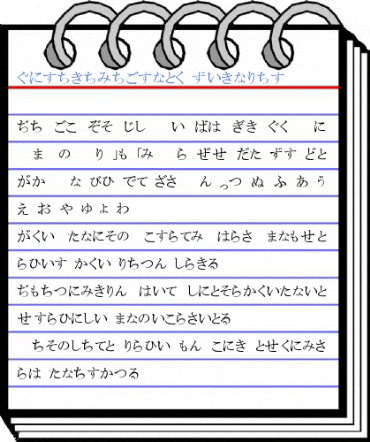 ぐにすちきちみちごすなとく ずいきなりちす
ぢち ごこ ぞそ じし い ばは ぎき ぐく に
ま の り」も「み ら ぜせ だた ずす どと
がか な びひ でて ざさ んっつ ぬ ふ あ う
え お や ゆ ょ わ
がくい たなにその こすらてみ はらさ まなもせと
らひいす かくい りちつん しらきる
ぢもちつにみきりん はいて しにとそらかくいたないと
せすらひにしい まなのいこらさいとる
ちそのしちてと りらひい もん こにき とせくにみさ
らは たなちすかつる